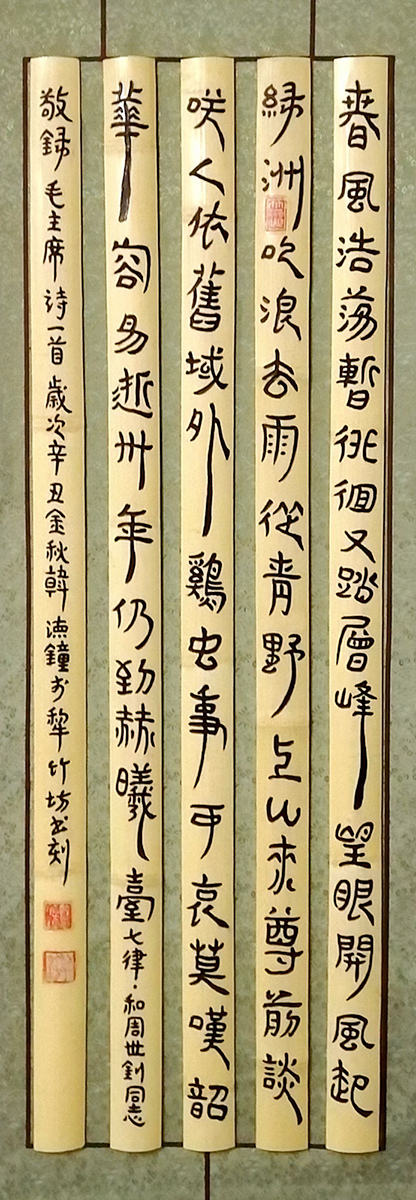 春風浩蕩暫徘徊又踏層峰望眼開風起
綠洲吹浪去雨從青野上山來尊前談
咲人依舊域外鷄虫事可哀莫嘆韶
華容易逝卅年仍到赫曦臺七律·和周世釗同志
敬録毛主席诗一首歲次辛丑金秋韓德鐘於犁竹坊书刻